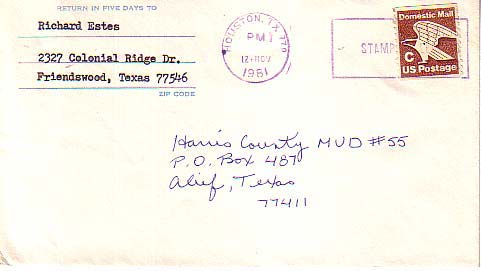 RETURN IN FIVE DAYS TO
Richard Estes
2327 Colonial Ridge Dr.
Friendswood, Texas 77546
ZIP CODE
HOUSTON, TX 770
PM
12 NOV
1981
STAMP
Domestic Mail
C
US Postage
Harris County MUD #55
P.O. Box 487
Alief, Texas
77411